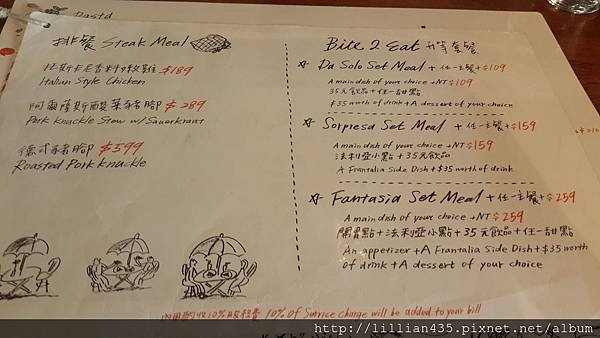 Pasta
排餐 Steak Meal
托斯卡尼香料嫩雞 $189
Italian Style Chicken
阿爾薩斯酸菜豬腳 $289
Pork Knuckle Stew w/ Sauerkraut
德式豬腳 $399
Roasted Pork Knuckle
Bite 2 Eat 升等套餐
Da Solo Set Meal + 任一主餐 + $109
A main dish of your choice + NT$109
35元飲品 + 任一甜點
$35 worth of drink + A dessert of your choice
Sorpresa Set Meal + 任一主餐 + $159
A main dish of your choice + NT$159
法利亞小點 + 35元飲品
A Frantalia Side Dish + $35 worth of drink
Fantasia Set Meal + 任一主餐 + $259
A main dish of your choice + NT$259
開胃點 + 法利亞小點 + 35元飲品 + 任一甜點
An appetizer + A Frantalia Side Dish + $35 worth
of drink + A dessert of your choice
內用酌收10%服務費 10% of Service Charge will be added to your bill
http://lillian435.pixnet.net/album